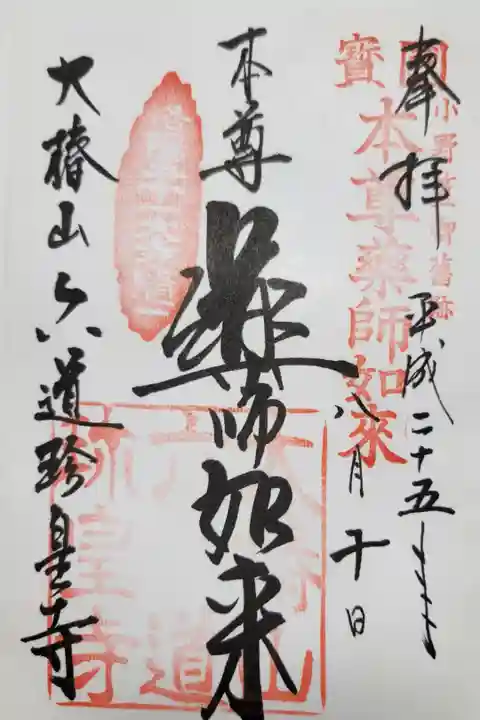 奉拝
平成二十五年
八月十日
小野篁卿舊跡
國寳
本尊薬師如來
本尊
薬師如来
大椿山六道珍皇寺
大椿山
六道
珍皇寺